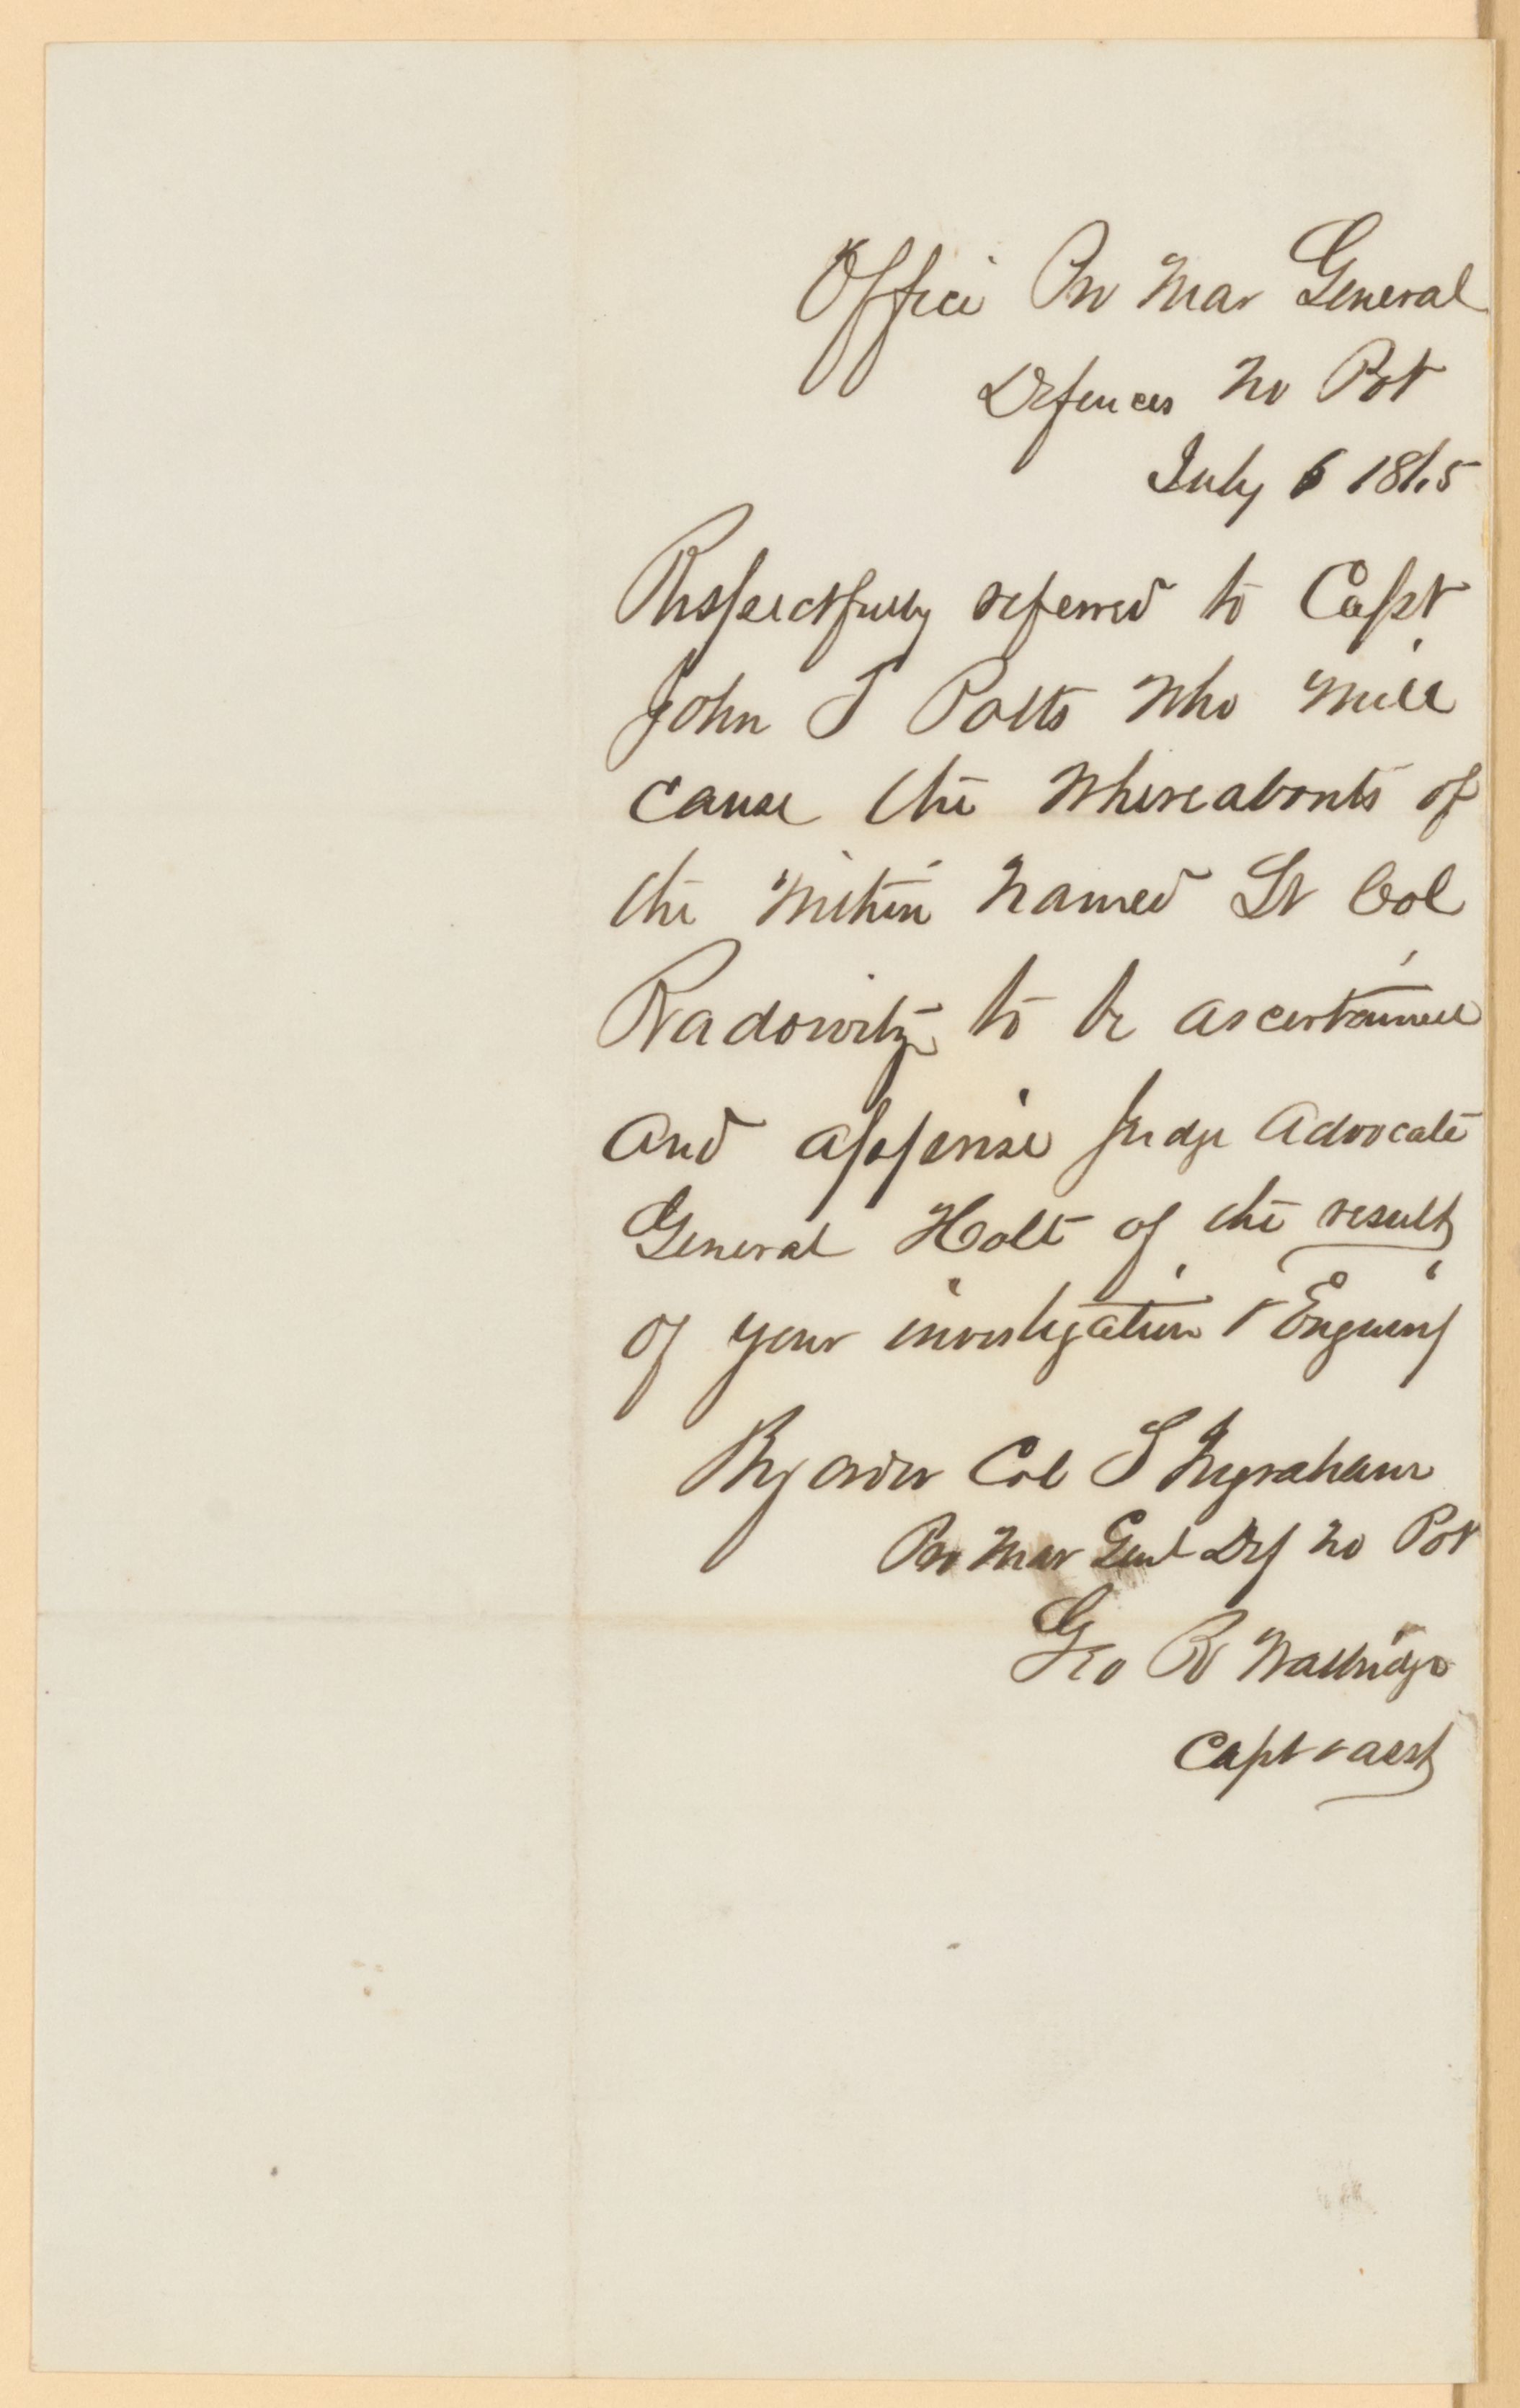 Office Pro Mar General
Defences No Pot
July 6 1865
Respectfully referred to Capt
John T Potts who will
cause the whereabouts of
the within named Lt Col
Radowitz to be ascertained
and apprise Judge Advocate
General Holt of the result
of your investigation & Enquiry
By order Col T Ingraham
Pro Mar Genl Def No Pot
Geo R Walbridge
Capt & asst